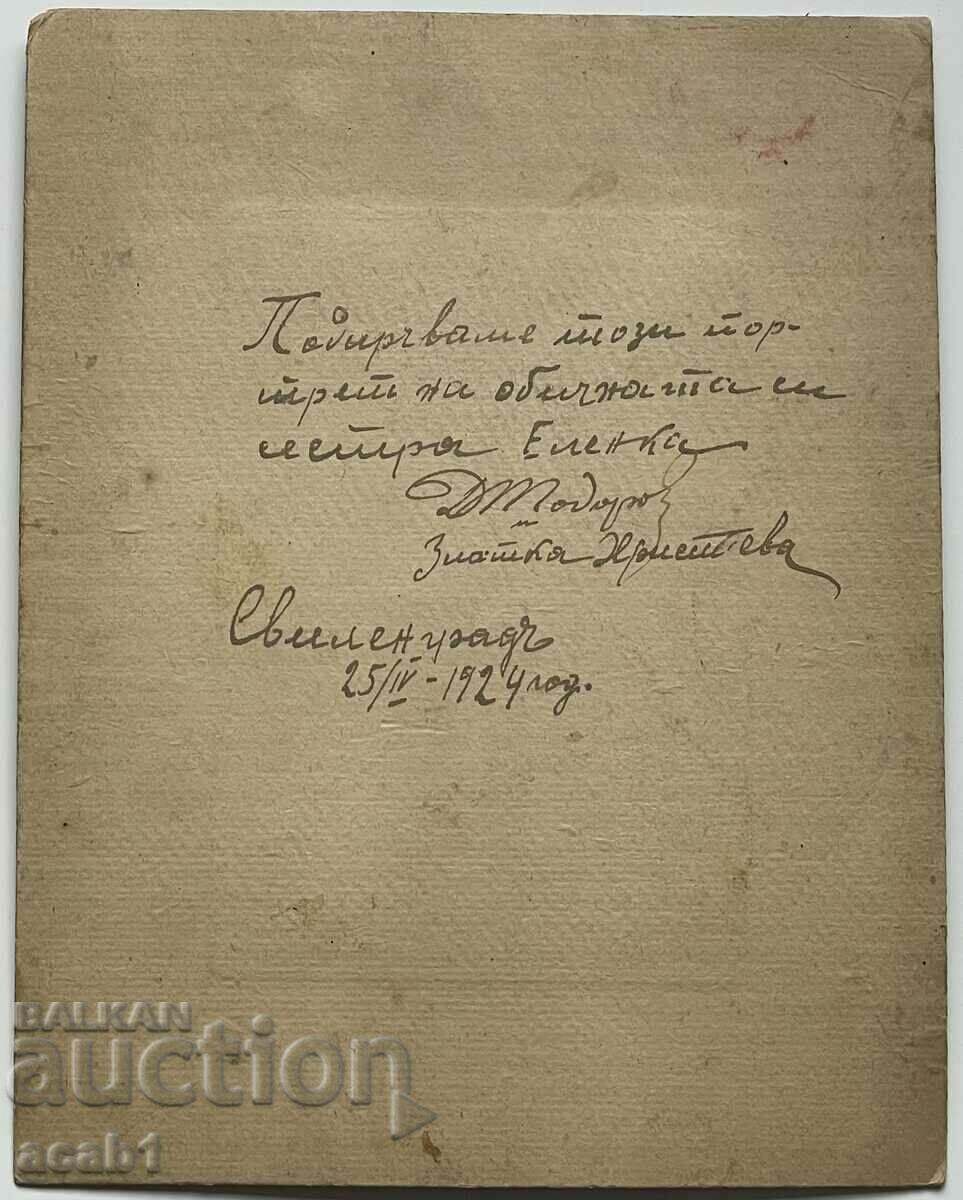 Подиръчваме този пор-
трет на обичната си
сестра Еленка
ДТодоров
и
Златка Христева
Свиленградъ
25/IV-1924 год.
BALKAN
auction
acab1